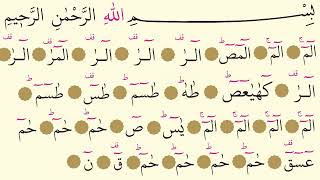 بِسْمِ اللهِ الرَّحْمٰنِ الرَّحِيمِ
الٓمٓ الٓمٓ الٓمٓصٓ الٓرٰ الٓرٰ الٓرٰ الٓمٓرٰ الٓرٰ
الٓرٰ كٓهٰيٰعٓصٓ طٰهٰ طٰسٓمٓ طٰسٓ طٰسٓمٓ
الٓمٓ الٓمٓ الٓمٓ الٓمٓ يٰسٓ صٓ حٰمٓ حٰمٓ حٰمٓ
عٓسٓقٓ حٰمٓ حٰمٓ حٰمٓ حٰمٓ قٓ نٓ